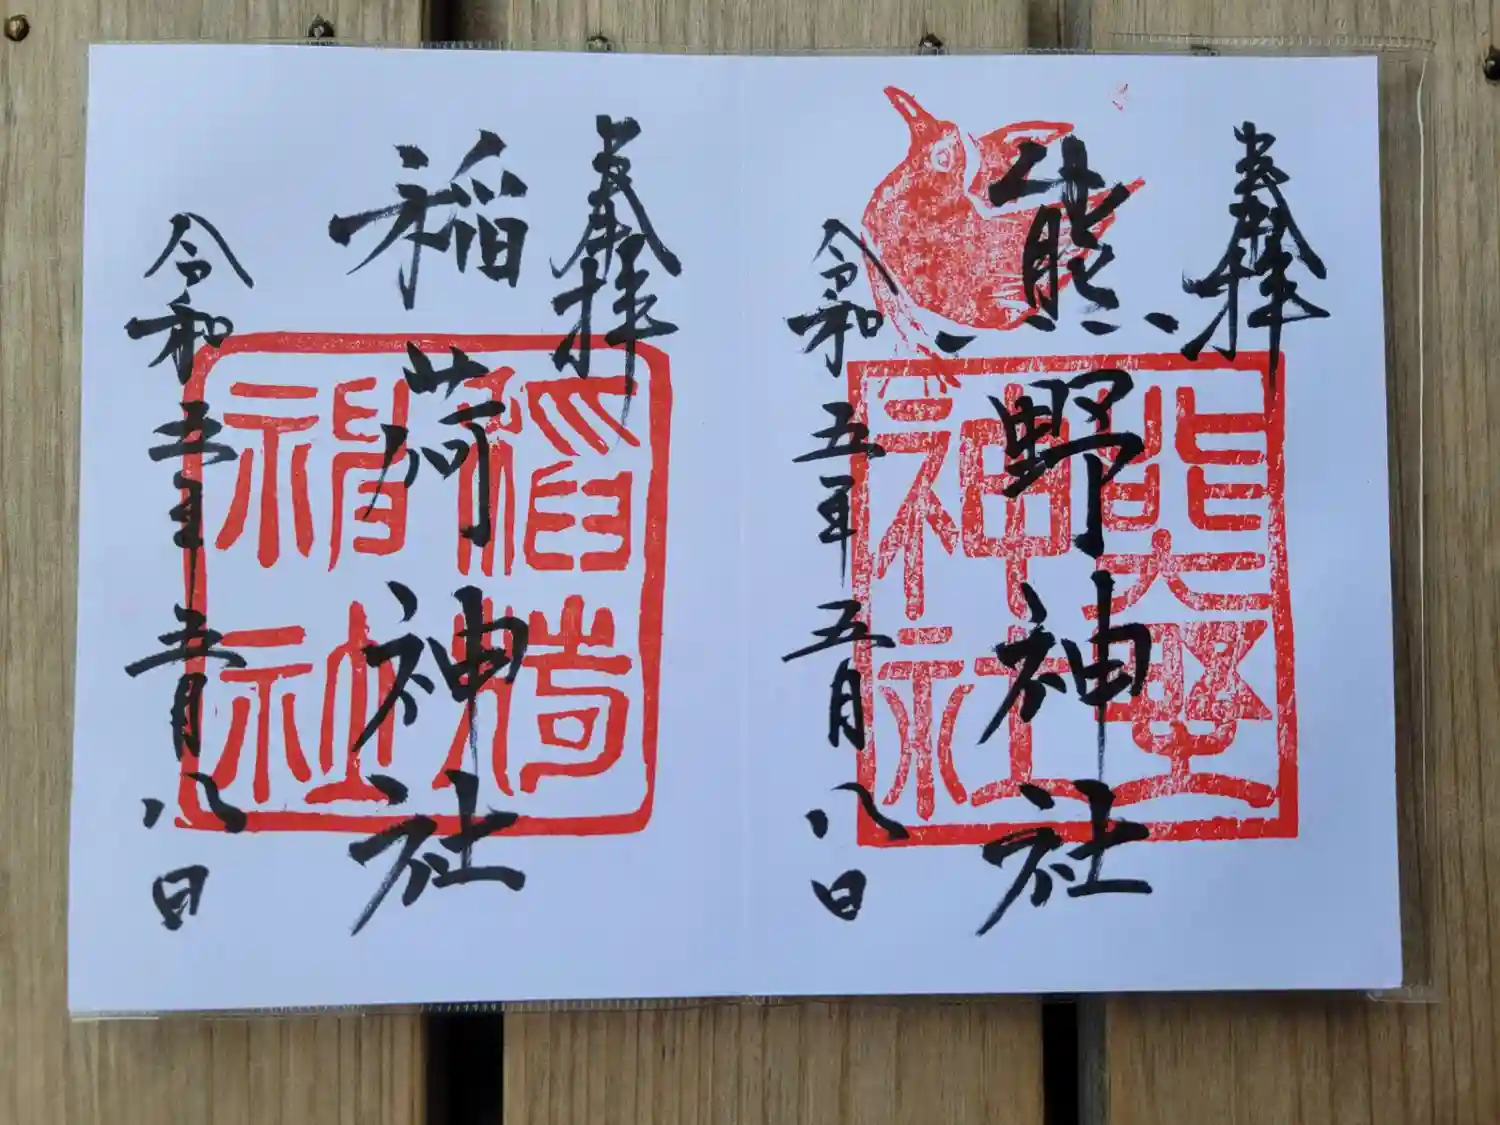 奉拝
熊野神社
熊野神社
令和五年五月八日
奉拝
稲荷神社
稲荷神社
令和五年五月八日